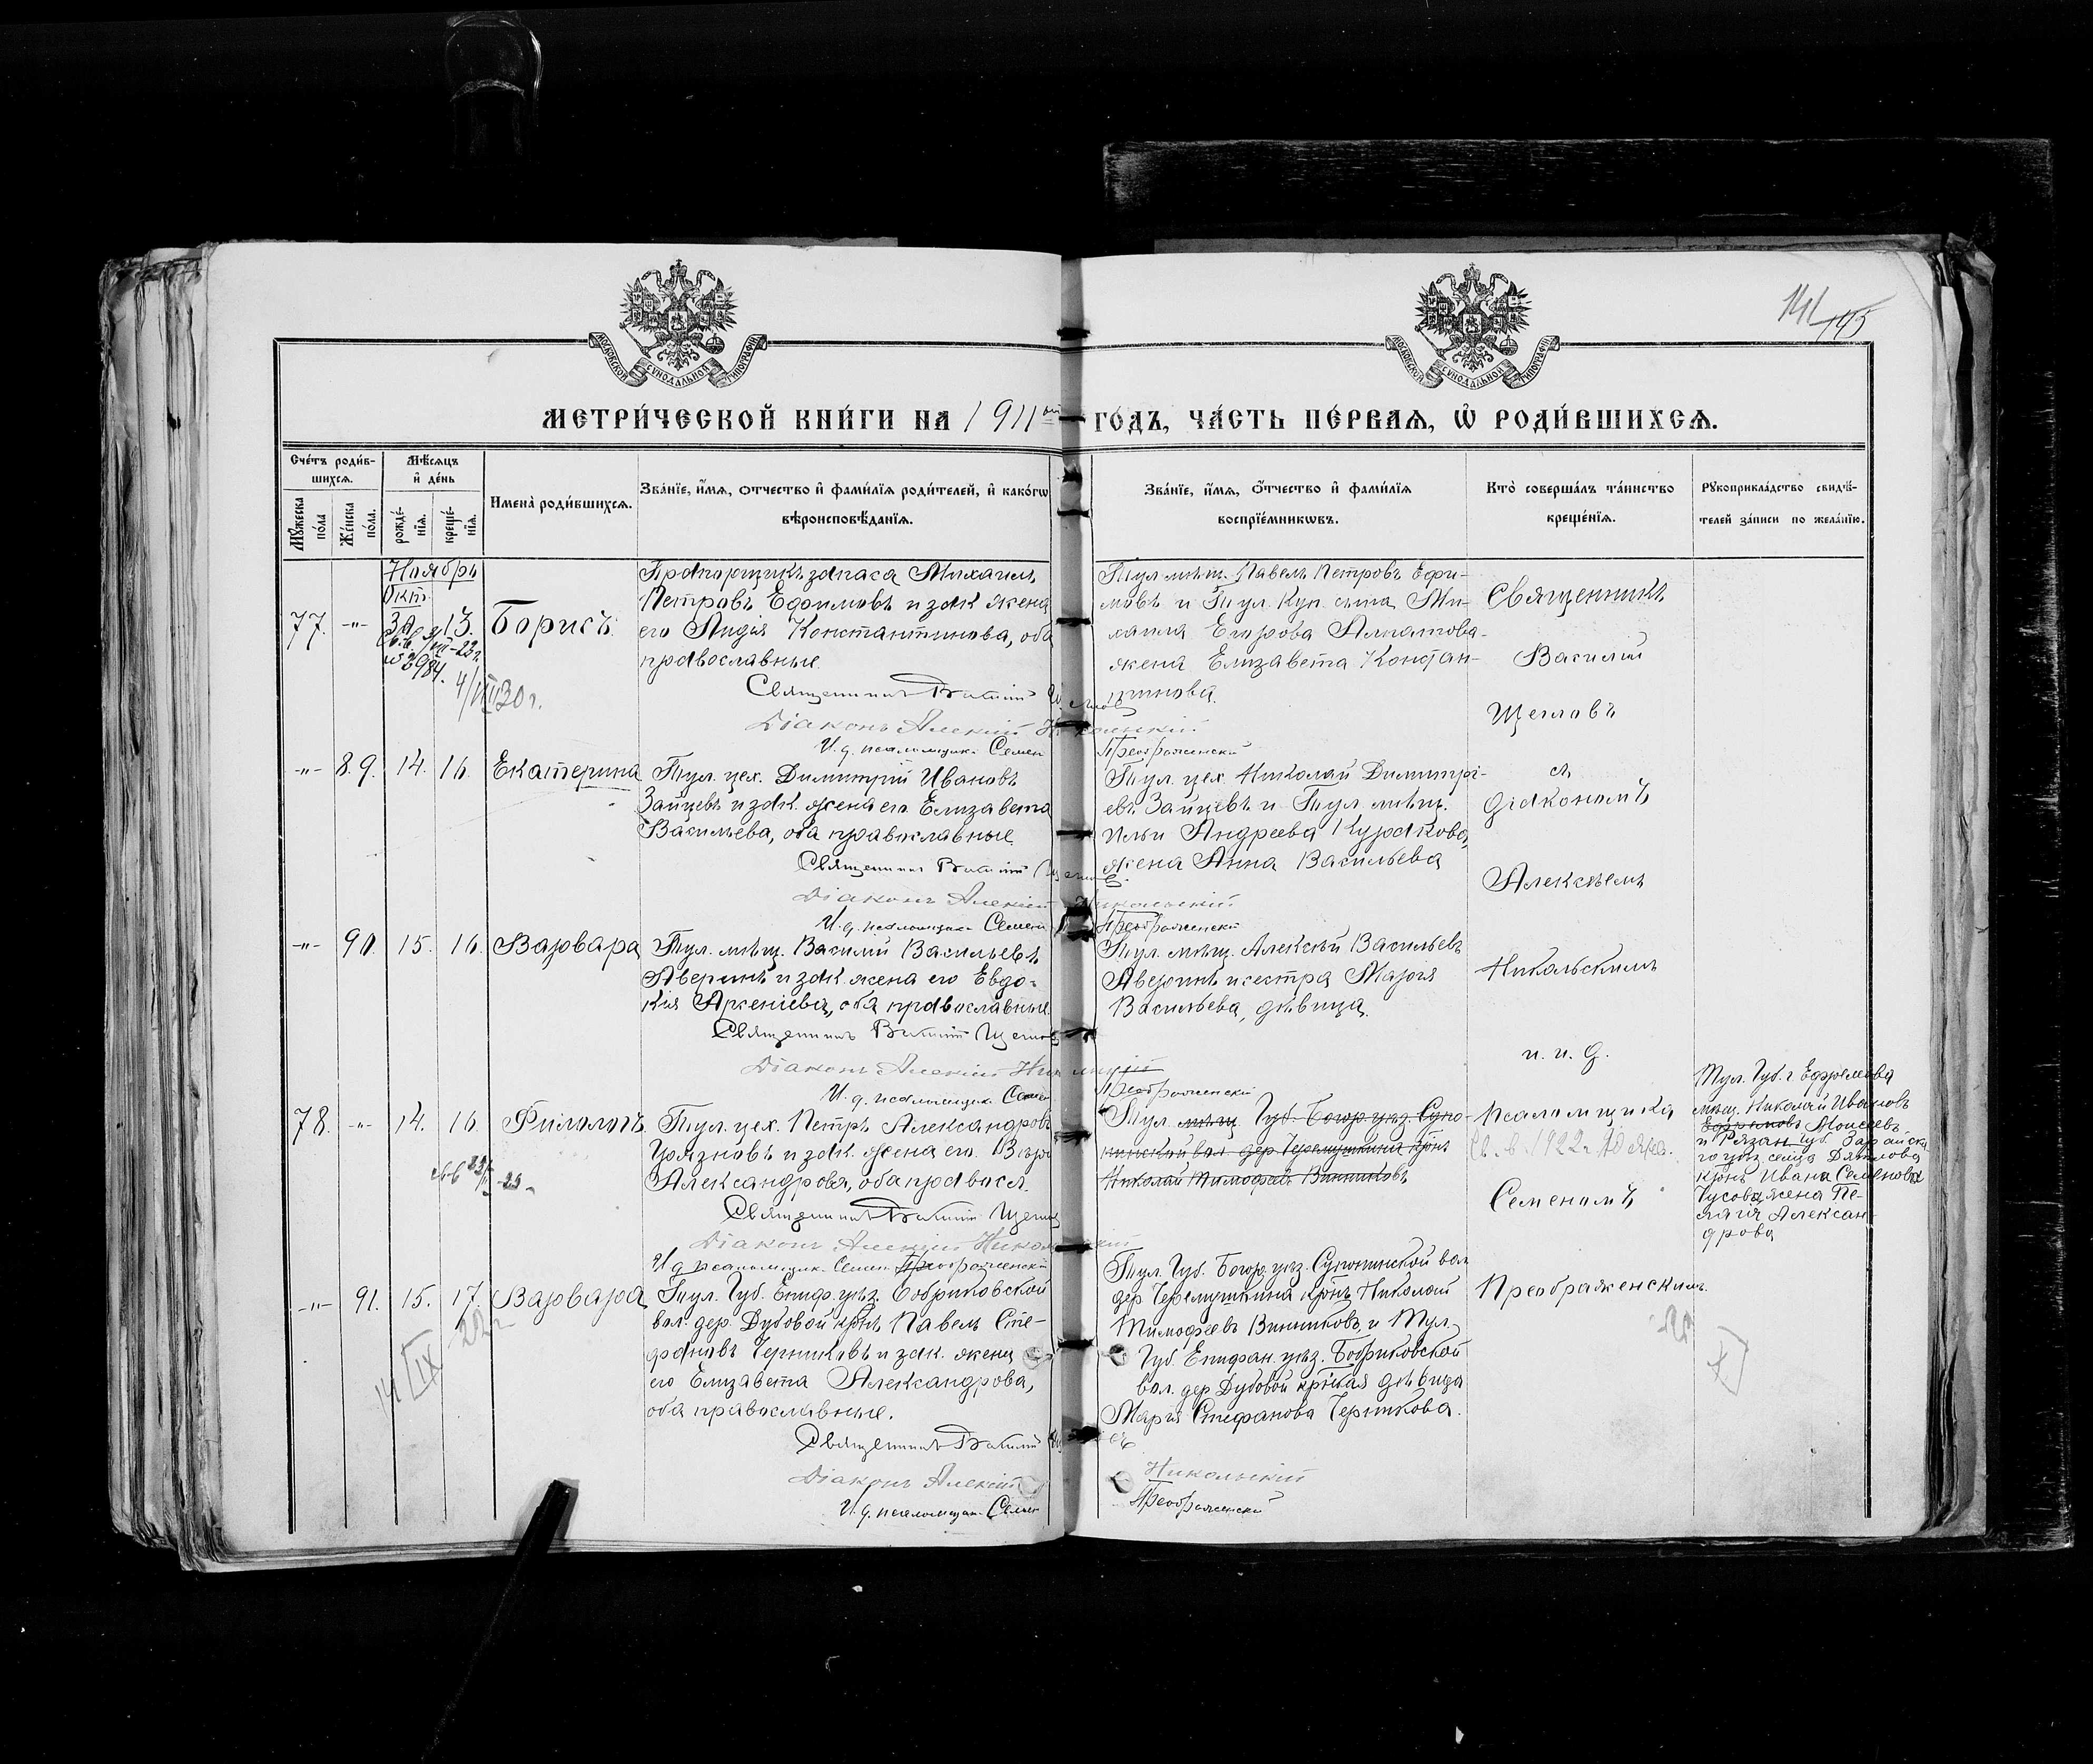 141
145
МОСКОВСКОЙ СѴНОДАЛЬНОЙ ТИПОГРАФІИ
МОСКОВСКОЙ СѴНОДАЛЬНОЙ ТИПОГРАФІИ
МЕТРИ́ЧЕСКОЙ КНИ́ГИ НА 1911 ый ГО́ДЪ, ЧА́СТЬ ПЕ́РВАѦ, Ѡ҆ РОДИ́ВШИХСѦ.
Сче́тъ роди́в-
шихсѧ.
Мꙋ́жеска по́ла
Же́нска по́ла.
Мѣ́сѧцъ
и҆ де́нь
рожде́-
нїѧ.
креще́-
нїѧ.
Имена̀ роди́вшихсѧ.
Зва́нїе, и҆́мѧ, ѻтчество и҆ фами́лїѧ роди́телей, и҆ како́гѡ
вѣроисповѣ́данїѧ.
Зва́нїе, и҆́мѧ, ѻ҆́тчество и҆ фами́лїѧ
воспрїе́мникѡвъ.
Кто̀ соверша́лъ та́инство
креще́нїѧ.
Рꙋкоприкла́дство свидѣ́-
телей за́писи по жела́нїю.
Ноябрь
Окт.
77. -"- 30 13. Борисъ.
№ 2984.
4/VIII 30 г.
Прапорщикъ запаса Михаилъ
Петровъ Ефимовъ и зак. жена
его Лидія Константинова, оба
православные.
Священникъ Василій Щегловъ
Діаконъ Алексій Никольскій
И. д. псаломщика Семен Преображенскій
Тул. мѣщ. Павелъ Петровъ Ефи-
мовъ и Тул. куп. сына Ми-
хаила Егорова Алпатова
жена Елизавета Констан-
тинова.
Священникъ
Василій
Щегловъ
съ
діакономъ
Алексѣемъ
Никольскимъ
и. и. д.
псаломщика
Семеномъ
Преображенскимъ.
-"- 89. 14. 16. Екатерина
Тул. цех. Димитрій Ивановъ
Зайцевъ и зак. жена его Елизавета
Васильева, оба православные
Священникъ Василій Щегловъ
Діаконъ Алексій Никольскій
И. д. псаломщика Семен Преображенскій
Тул. цех. Николай Димитрі-
евъ Зайцевъ и Тул. мѣщ.
Ильи Андреева Курдкова,
жена Анна Васильева
-"- 90. 15. 16. Варвара
Тул. мѣщ. Василій Васильевъ
Аверинъ и зак. жена его Евдо-
кія Арсеніева, оба православные.
Священникъ Василій Щегловъ
Діаконъ Алексій Никольскій
И. д. псаломщика Семен Преображенскій
Тул. мѣщ. Алексѣй Васильевъ
Аверинъ и сестра Марія
Васильева, дѣвица.
78. -"- 14. 16. Филиппъ
Тул. цех. Петръ Александровъ
Грязновъ и зак. жена его Вѣра
Александрова, оба правосл.
Священникъ Василій Щегловъ
Діаконъ Алексій Никольскій
И. д. псаломщика Семен Преображенскій
Тул. мѣщ. Губ. Богор. уѣз. Супо-
нинской вол. дер. Черемушкина крнъ
Николай Тимофеевъ Винниковъ
Св. в. 1922 г.
Тул. Губ. г. Ефремова
мѣщ. Николай Ивановъ
Ефримовъ Моисеевъ
и Рязан. Губ. Зарайска
го уѣз. сельца Дятлова
крнъ Ивана Семенова
Чусова жена Пе-
лагія Алексан-
дрова
-"- 91. 15. 17. Варвара
14/IX 22 г.
Тул. Губ. Епиф. уѣз. Бобриковской
вол. дер. Дубовой крнъ Павелъ Сте-
фановъ Черниковъ и зак. жена
его Елизавета Александрова,
оба православные.
Священникъ Василій Щегловъ
Діаконъ Алексій Никольскій
И. д. псаломщик. Семен Преображенскій
Тул. Губ. Богор. уѣз. Супонинской вол.
дер. Черемушкина крнъ Николай
Тимофеевъ Винниковъ, и Тул.
Губ. Епифан. уѣз. Бобриковской
вол. дер. Дубовой крнская дѣвица
Марія Стефанова Черникова.